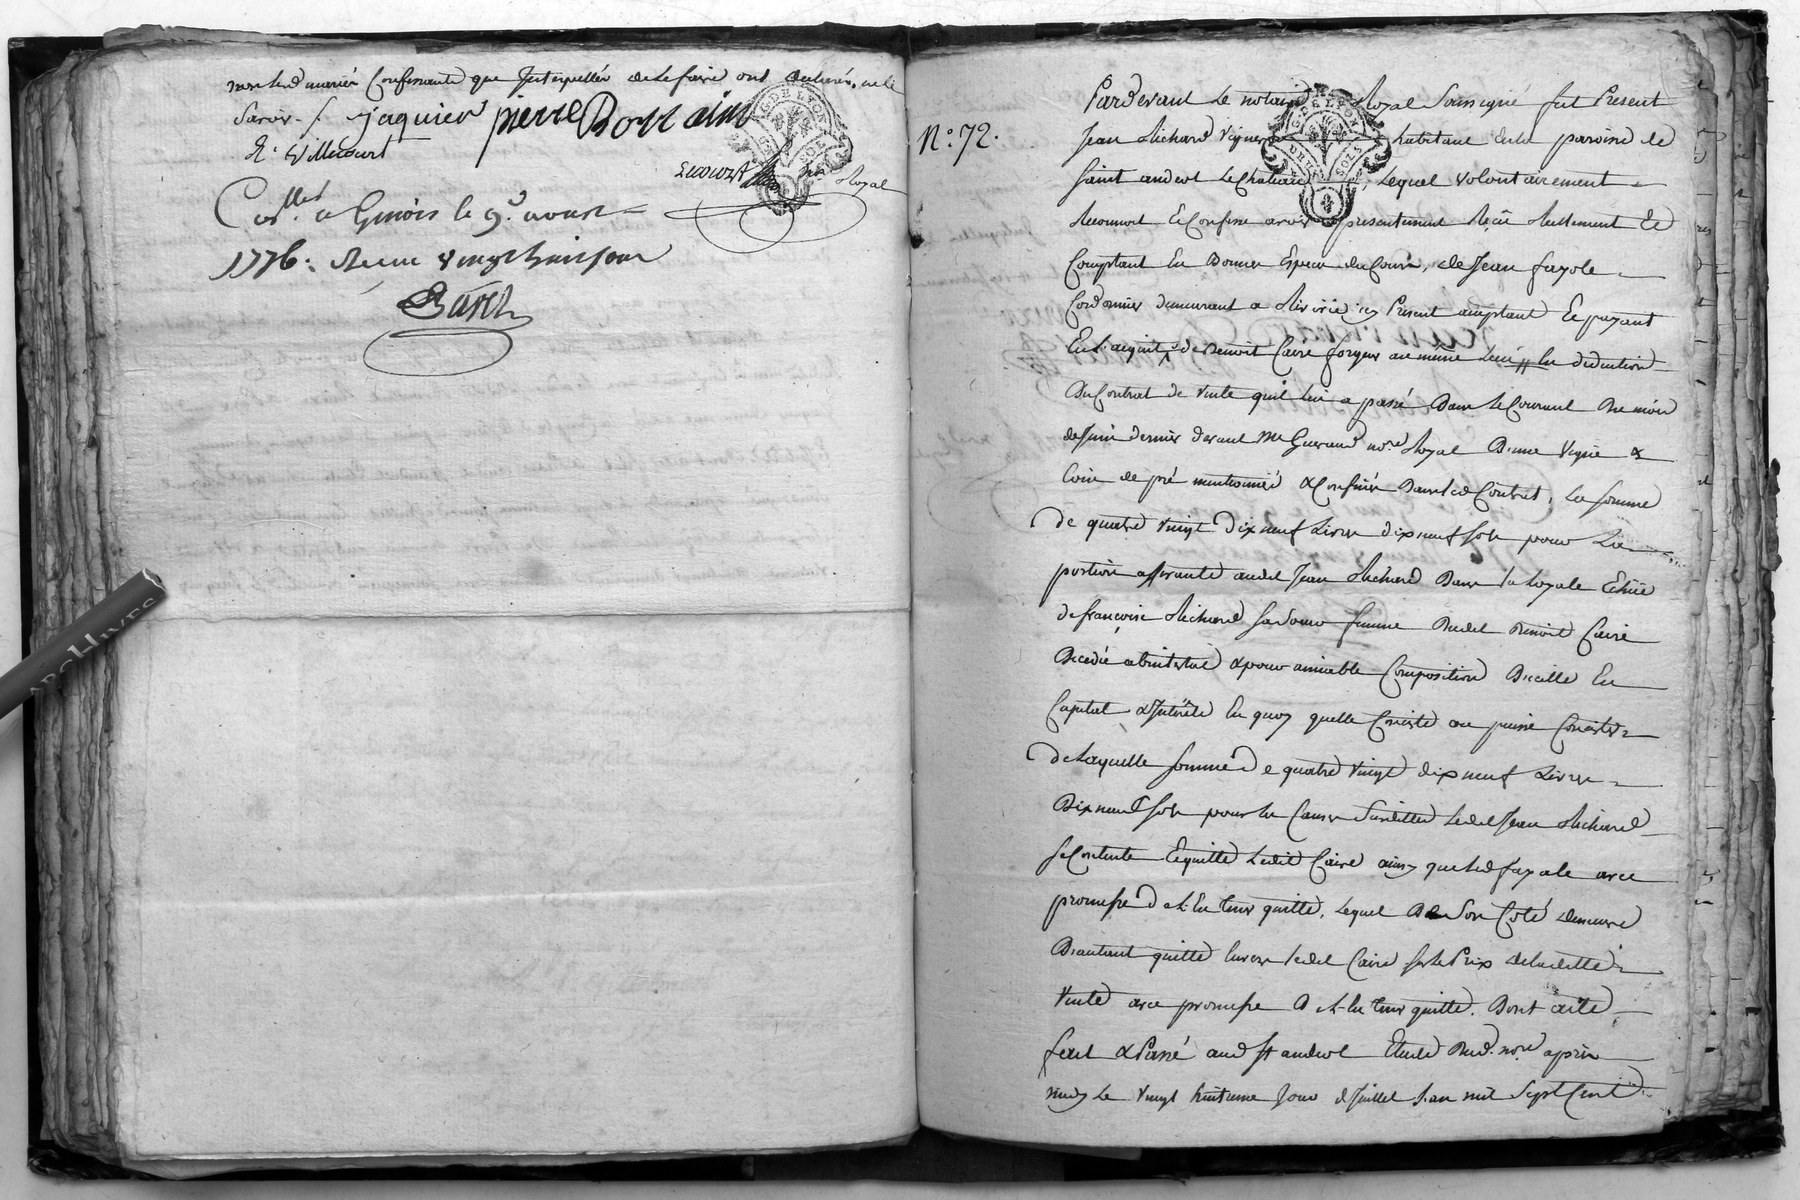 non led. mariés confessants que Interpellés de le faire ont declarés ne le
Savoir. /. jaquier pierre Bonnain
D. Villecourt
Lecourt Nre Royal
G. DE LYON
SOLS
Con.llé a Givors le 9.e aoust
1776. Reçu vingt huit sous
Barel
Pardevant Le notaire Royal Soussigné fut Present
N.o 72.
Jean Richard Vigneron habitant de la paroisse de
Saint andeol Le Chateau, Lequel volontairement
Reconnoit & Confesse avoir presentement Reçû Reellement &
Comptant En Bonnes Especes du Cours, de Jean fayole
Cordonnier demeurant a Riverie icy Present acceptant & payant
En L'acquit de Benoit Caire forgeur au même Lieu, En deduction
Du Contrat de Vente qu'il lui a passé Dans Le Courant Du mois
de Juin dernier devant Me Guerand no.re Royal D'une Vigne &
Coin de pré mentionnés & Confinés Dans led. Contrat, La somme
De quatre Vingt Dix neuf Livres dix neuf sols pour La
portion afferante audit Jean Richard Dans la hoyrie Echüe
de françoise Richard sa soeur femme Dudit Benoit Caire
Decedée abintestat & pour amiable Composition D'icelle En
Capital & Interêts En quoy qu'elle Consiste ou puisse Consister
De Laquelle somme De quatre Vingt dix neuf Livres
Dix neuf sols pour les Causes Susdittes Ledit Jean Richard
se Contente & quitte Ledit Caire ainsy que led. fayole avec
promesse de L'En tenir quitte, Lequel De Son Coté demeure
D'autant quitte Envers ledit Caire sur le Prix de la ditte
Vente avec promesse de L'en tenir quitte. Dont acte
fait & Passé aud. St andeol Etude Dud. no.re après
midy Le Vingt huitieme Jour de Juillet L'an mil Sept Cent
G. DE LYON
DEUX SOLS
ARCHIVES